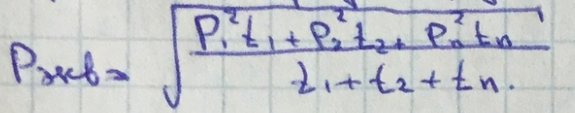 Pэкв = √((P₁²t₁ + P₂²t₂ + Pₙ²tₙ) / (t₁ + t₂ + tₙ.))